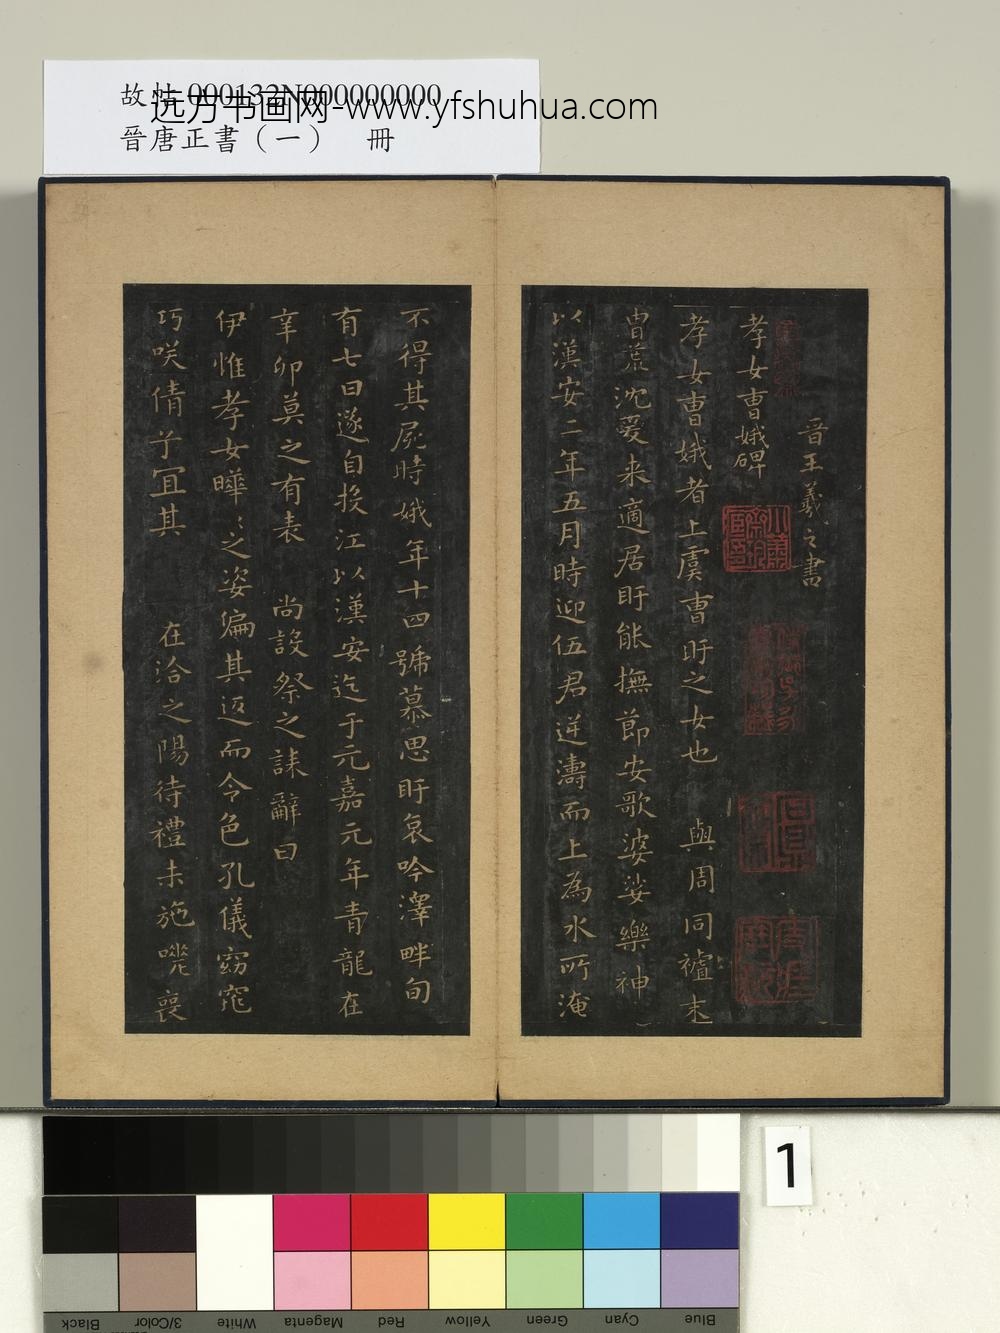 故帖 000132N000000000
远方书画网-www.yfshuhua.com
晉唐正書（一） 冊
晉王羲之書
孝女曹娥碑
孝女曹娥者上虞曹盱之女也 與周同祖末
胄荒沈爰来適居盱能撫節安歌婆娑樂神
以漢安二年五月時迎伍君逆濤而上為水所淹
不得其屍時娥年十四號慕思盱哀吟澤畔旬
有七日遂自投江以漢安迄于元嘉元年青龍在
辛卯莫之有表 尚設祭之誄辭曰
伊惟孝女曄〻之姿偏其返而令色孔儀窈窕
巧咲倩兮宜其 在洽之陽待禮未施嗟喪
1
Black
3/Color
White
Magenta
Red
Yellow
Green
Cyan
Blue